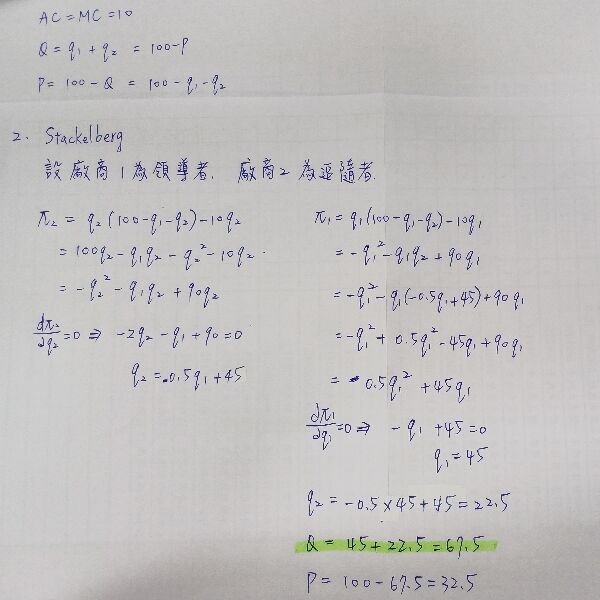 AC = MC = 10
Q = q₁ + q₂ = 100-P
P = 100 - Q = 100 - q₁ - q₂
2. Stackelberg
設廠商1為領導者, 廠商2為追隨者.
π₂ = q₂(100-q₁-q₂)-10q₂
= 100q₂ - q₁q₂ - q₂² - 10q₂
= -q₂² - q₁q₂ + 90q₂
dπ₂/dq₂ = 0 ⇒ -2q₂ - q₁ + 90 = 0
q₂ = -0.5q₁ + 45
π₁ = q₁(100-q₁-q₂)-10q₁
= -q₁² - q₁q₂ + 90q₁
= -q₁² - q₁(-0.5q₁+45) + 90q₁
= -q₁² + 0.5q₁² - 45q₁ + 90q₁
= -0.5q₁² + 45q₁
dπ₁/dq₁ = 0 ⇒ -q₁ + 45 = 0
q₁ = 45
q₂ = -0.5×45+45 = 22.5
Q = 45+22.5 = 67.5
P = 100 - 67.5 = 32.5